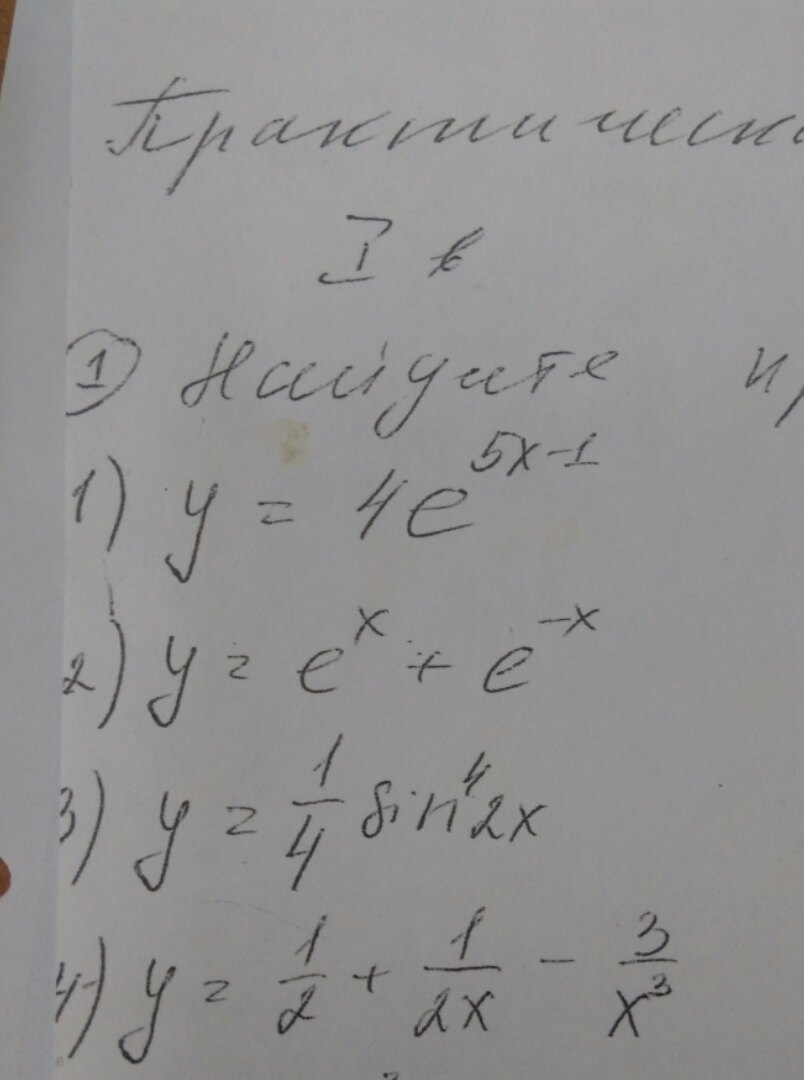 Практическ
I в
① Найдите пр
1) y = 4e^{5x-1}
2) y = e^x + e^{-x}
3) y = \frac{1}{4} sin^4 2x
4) y = \frac{1}{2} + \frac{1}{2x} - \frac{3}{x^3}